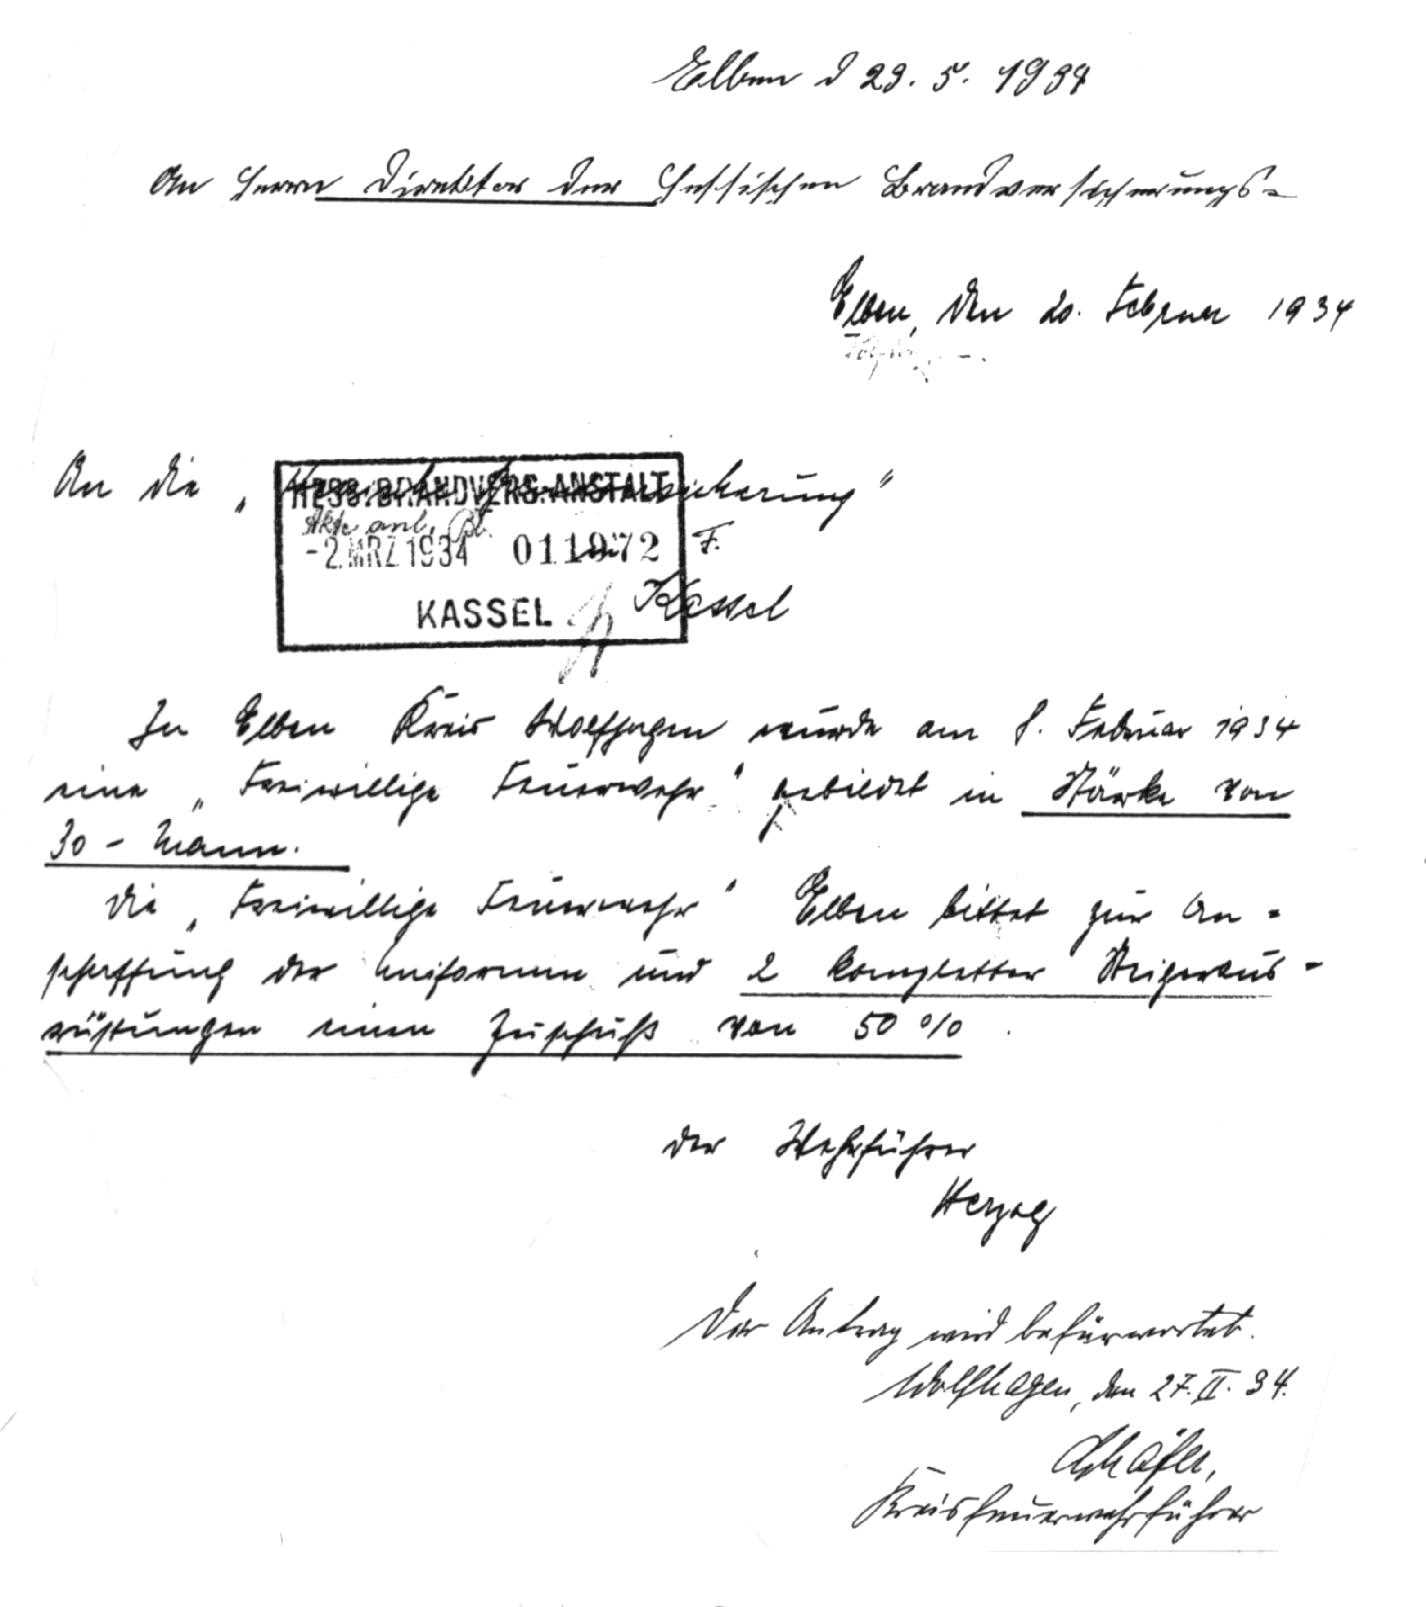 Elben d 23. 5. 1934
An Herrn Direktor der Hessischen Brandversicherungs-
Elben, den 20. Februar 1934
An die „Hessische Brandversicherung"
HESS. BRANDVERS. ANSTALT
Akte anl. Bl.
-2. MRZ. 1934 011972 F.
KASSEL Kassel
In Elben Kreis Wolfhagen wurde am 8. Februar 1934
eine „Freiwillige Feuerwehr" gebildet in Stärke von
30 - Mann.
Die „Freiwillige Feuerwehr" Elben bittet zur An-
schaffung der Uniformen und 2 kompletter Steigeraus-
rüstungen einen Zuschuß von 50 %.
Der Wehrführer
Herzog
Der Antrag wird befürwortet.
Wolfhagen, den 27. II. 34.
Schäfer,
Kreisfeuerwehrführer